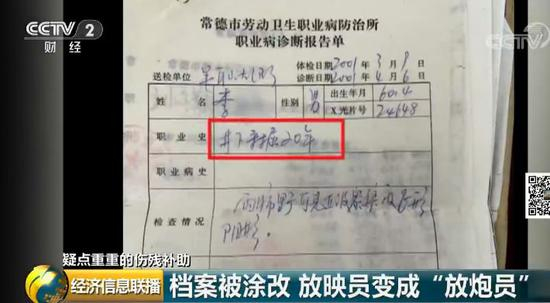 CCTV 2
财经
常德市劳动卫生职业病防治所
职业病诊断报告单
体检日期2001年3月9日
送检单位
诊断日期2001年4月6日
姓名 李 性别 男 出生年月 60.4
X光片号 24648
职业史 井下采掘20年
职业病史
检查情况
疑点重重的伤残补助
经济信息联播 档案被涂改 放映员变成“放炮员”